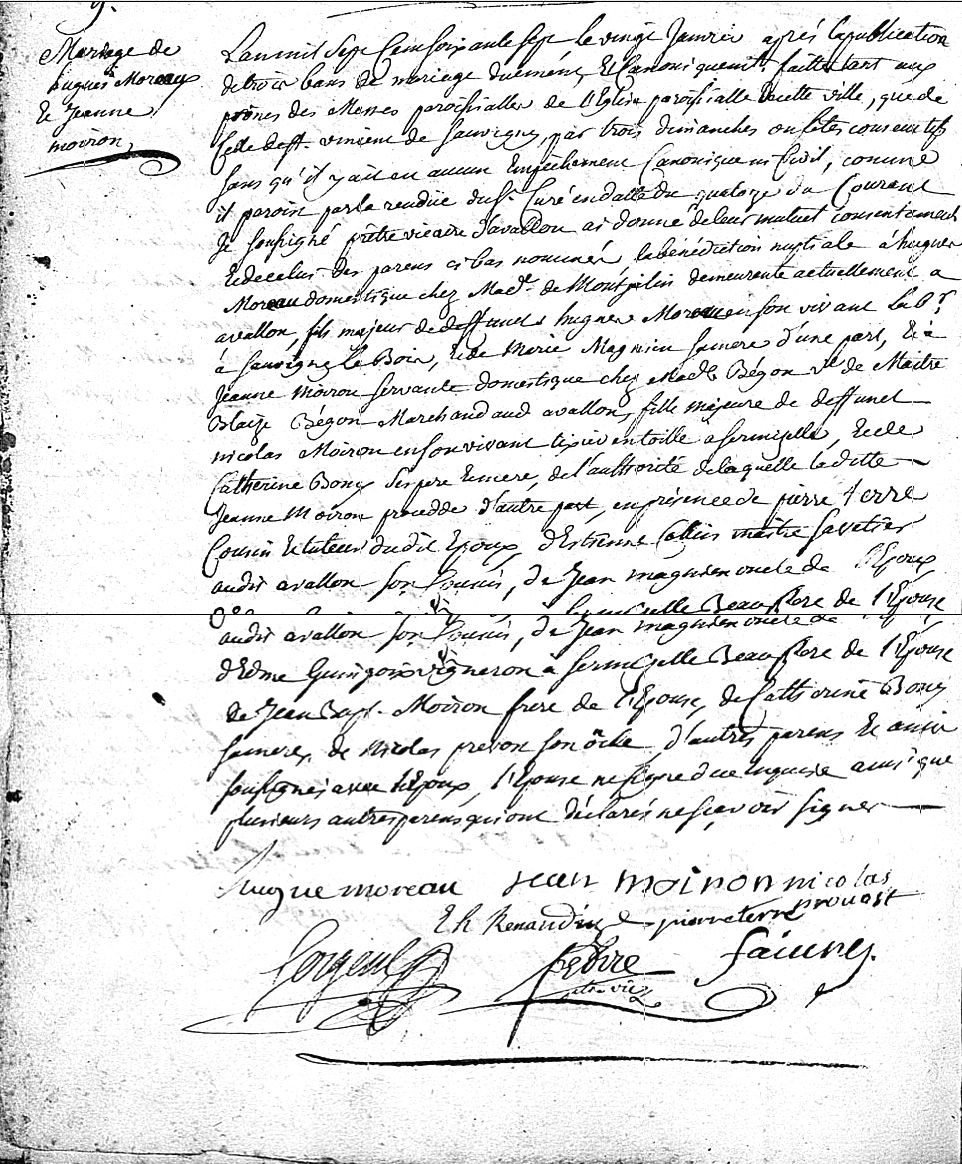 9.
Mariage de
hugues Moreau
Et Jeanne
moiron
L'an mil Sept Cent soixante sept, le vingt Janvier après la publication
de trois bans de mariage duement, Et Canoniquement faitte tant aux
prônes des Messes paroissialles de l'Eglise paroissialle de cette ville, que de
celle de st. vincent de Sauvigny, par trois dimanches ou fêtes consecutifs
sans qu'il y ait eu aucun Empechement Canonique ni Civil, comme
il paroist par la rendüe du sr. Curé en datte du quatorze du Courant
Je soussigné prêtre vicaire d'avallon ai donné de leur mutuel consentement
Et de celui des parens ci bas nommés la bénédiction nuptiale à hugues
Moreau domestique chez Made. de Montjalin demeurante actuellement a
avallon, fils majeur de deffunct hugues Moreau en son vivant
à Sauvigny le Bois, Et de Marie Magnien sa mere d'une part, Et à
Jeanne Moiron servante domestique chez Made Bégon ve de Maitre
Blaize Bégon Marchand aud avallon, fille majeure de deffunct
nicolas Moiron en son vivant tixier en toille a Sermizelle, Et de
Catherine Bony ses pere Et mere, de l'authorité de laquelle laditte
Jeanne Moiron procedde d'autre part, en présence de pierre terre
Cousin Et tuteur dudit Epoux, d'Estienne maitre savetier
audit avallon son Cousin, de Jean magnien oncle de l'Epoux,
audit avallon son Cousin, de Jean magnien oncle de
d'Edme vigneron à Sermizelle Beau frere de l'Epouse
de Jean Bapt. Moiron frere de l'Epouse, de Catherine Bony
sa mere, de Nicolas prevost son oncle d'autres parens Et amis
soussignés avec l'Epoux, l'Epouse ne signe de ce enquise ainsi que
plusieurs autres parens qui ont déclarés ne sçavoir signer
hugue moreau jean moiron nicolas
prouost
Renaudin pierre terre
febvre
ptre vic